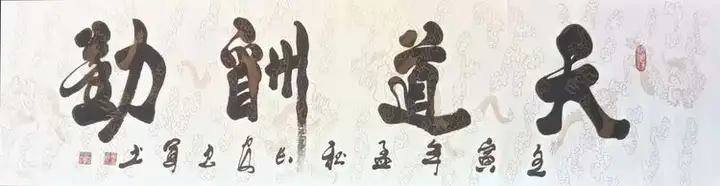 天道酬勤
壬寅年孟秋书